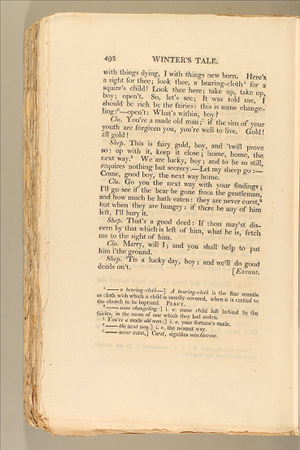 492 WINTER'S TALE.
with things dying, I with things new born. Here's
a sight for thee; look thee, a bearing-cloth for a
squire's child! Look thee here; take up, take up,
boy; open't. So, let's see; It was told me, I
should be rich by the fairies: this is some change-
ling:—open't: What's within, boy?
Clo. You're a made old man; if the sins of your
youth are forgiven you, you're well to live. Gold!
all gold!
Shep. This is fairy gold, boy, and 'twill prove
so: up with it, keep it close; home, home, the
next way. We are lucky, boy; and to be so still,
requires nothing but secrecy.—Let my sheep go:—
Come, good boy, the next way home.
Clo. Go you the next way with your findings;
I'll go see if the bear be gone from the gentleman,
and how much he hath eaten: they are never curst,
but when they are hungry: if there be any of him
left, I'll bury it.
Shep. That's a good deed: If thou may'st dis-
cern by that which is left of him, what he is, fetch
me to the sight of him.
Clo. Marry, will I; and you shall help to put
him i'the ground.
Shep. 'Tis a lucky day, boy; and we'll do good
deeds on't. [Exeunt.
—— a bearing-cloth—] A bearing-cloth is the fine mantle
or cloth with which a child is usually covered, when it is carried to
the church to be baptized. PERCY.
—— some changeling:] i. e. some child left behind by the
fairies, in the room of one which they had stolen.
You're a made old man;] i. e. your fortune's made.
—— the next way.] i. e. the nearest way.
—— never curst,] Curst, signifies mischievous.